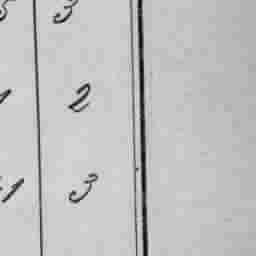 3
1 2
1 3